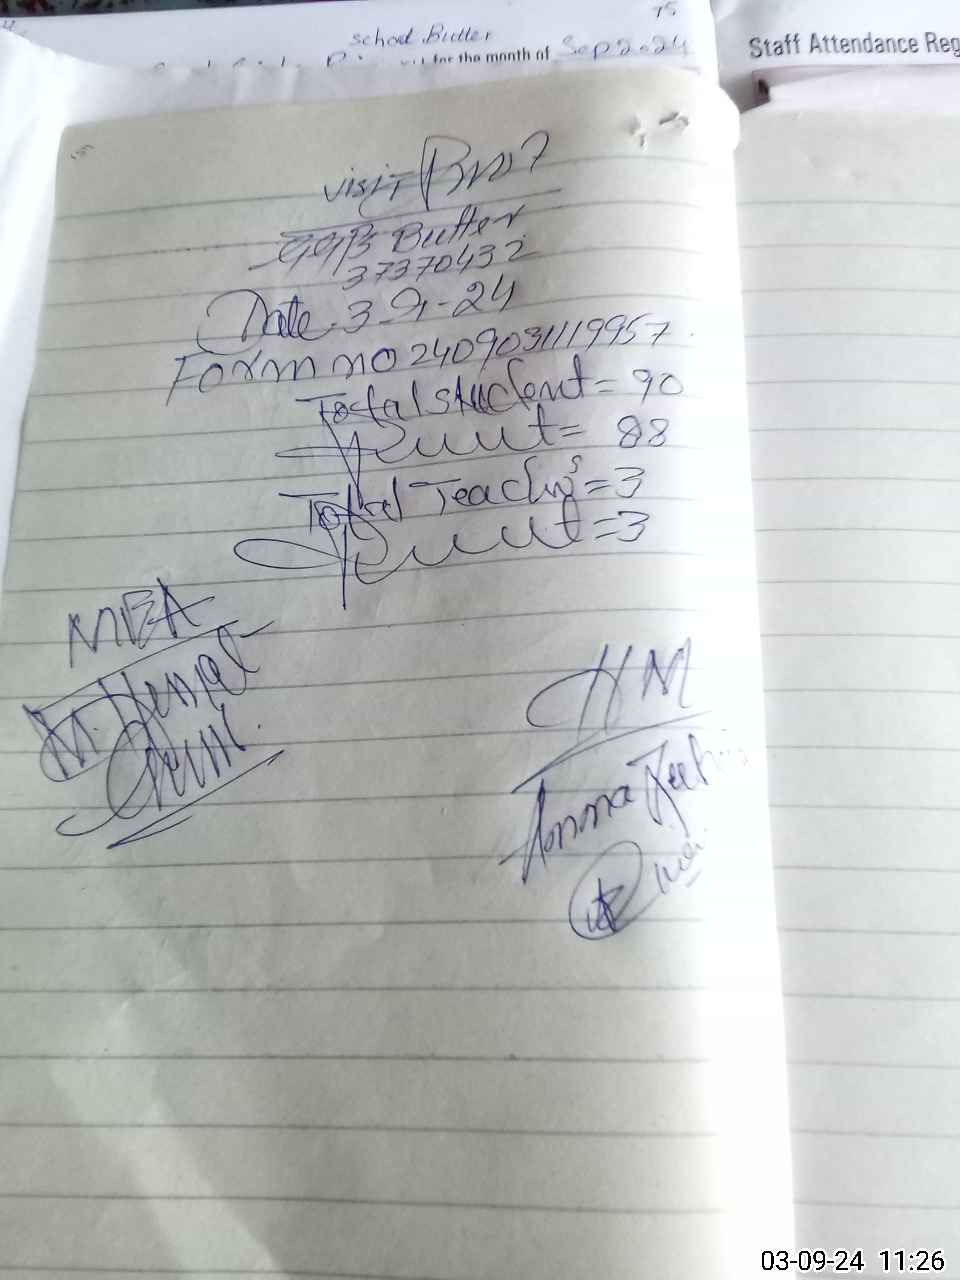 75
school Butter
for the month of Sep 2024
Staff Attendance Reg
visit
GGPS Butter
37370432
Date 3-9-24
Form no 2409031119957
Total student = 90
Present = 88
Total Teachers = 3
Present = 3
MEA
M.
HM
Amna
03-09-24 11:26